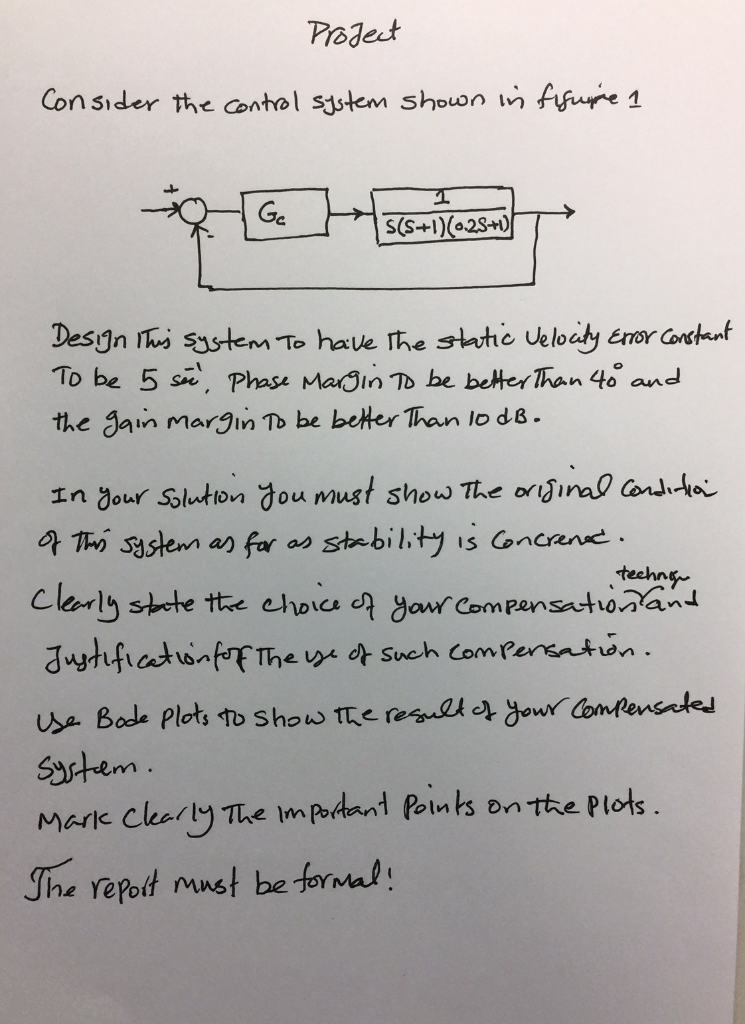 Project
Consider the control system shown in figure 1
+
Gc
1
S(S+1)(0.2S+1)
-
Design This system To have The static Velocity Error Constant
To be 5 sec⁻¹, Phase Margin To be better Than 40° and
the gain margin To be better Than 10 dB.
In your Solution you must show The original Condition
of This system as far as stability is Concrened.
techniqe
Clearly state the choice of your compensation and
Justification for The use of such compensation.
Use Bode Plots to show the result of your Compensated
System.
Mark Clearly The important Points on the Plots.
The report must be formal!